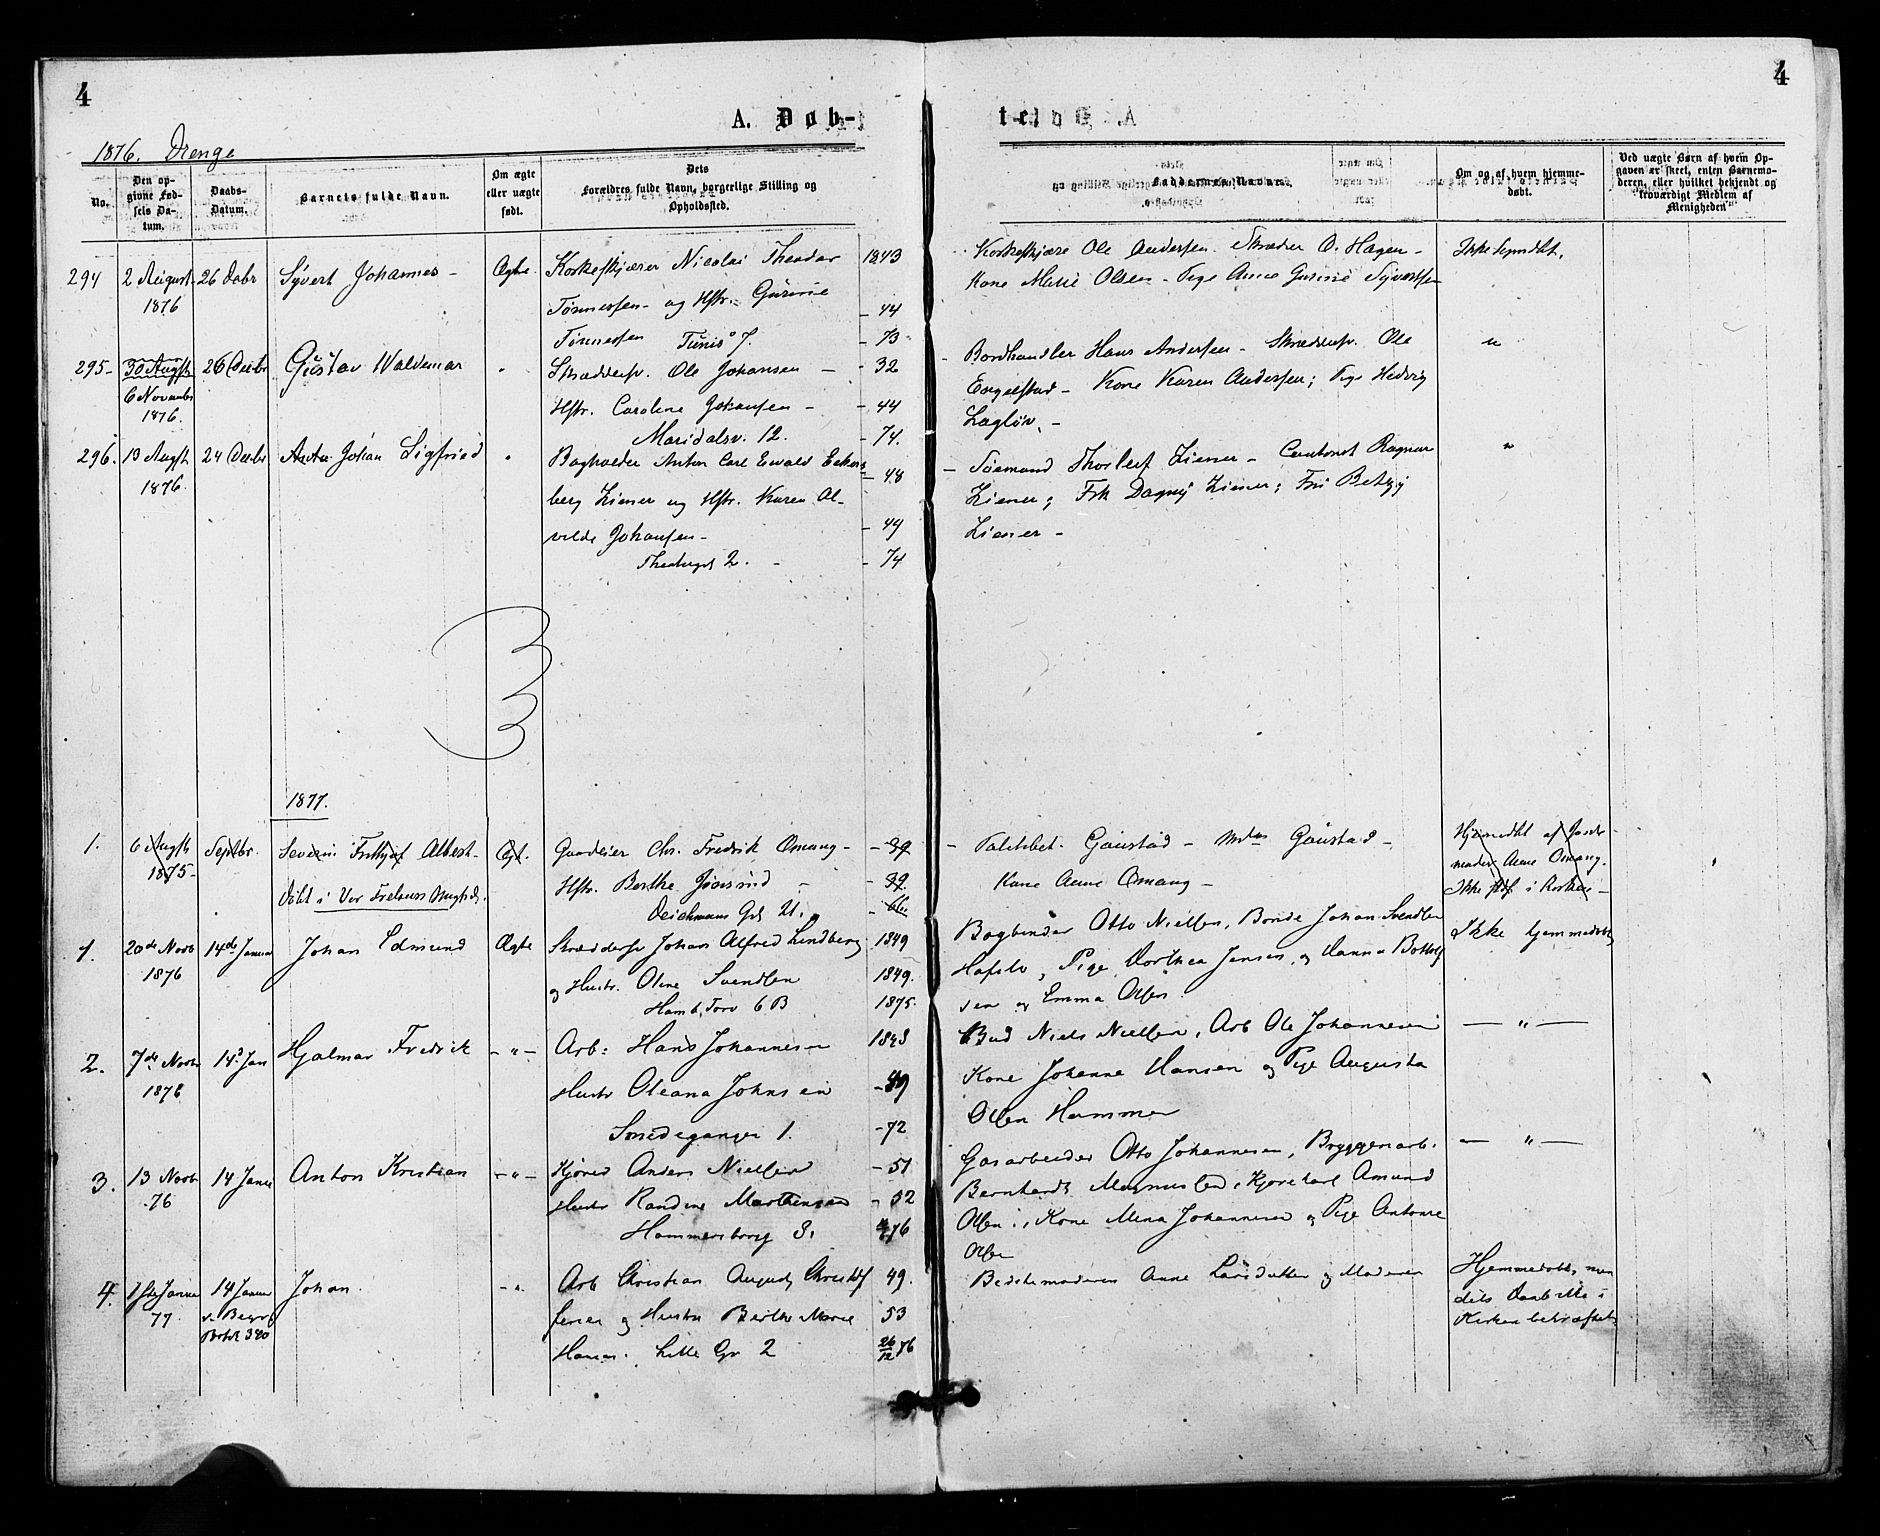 4
4
A. Døb-
te.
1876. Drenge
No.
Den op-
givne Fød-
sels Da-
tum.
Daabs-
Datum.
Barnets fulde Navn.
Om ægte
eller uægte
født.
Dets
Forældres fulde Navn, borgerlige Stilling og
Opholdssted.
Faddernes Navne.
Om og af hvem hjemme-
døbt.
Ved uægte Børn af hvem Op-
gaven er skeet, enten Barnemo-
deren, eller hvilket bekjendt og
troværdigt Medlem af
Menigheden
294
2 August
1876
26 Debr
Syvert Johannes -
Ægte.
Korkeskjærer Nicolai Theodor
Tønnessen - og Hstr. Gurine
Tønnessen Tunis 7.
1843
- 44
- 73
Korkeskjære Ole Andersen. Skræder O. Hagen -
Kone Marie Olsen - Pige Anne Gurine Syvertsen
Ikke hjmdbt.
295 -
30 Augst
6 November
1876.
26 Decbr
Gustav Waldemar
Skræddersv. Ole Johansen -
Hstr. Caroline Johansen -
Maridalsv. 12.
- 32
- 44
- 74.
Bordhandler Hans Andersen - Skræddersv. Ole
Engelstad - Kone Karen Andersen; Pige Hedvig
"
296.
13 Augst
1876.
24 Decbr
Johan Sigfried
Bogholder Anton Carl Ewald Eckers
berg Ziener og Hstr. Karen Al-
vilde Johansen -
Theatergd 2.
- 48
- 49
- 74
- Sømand Thorleif Ziener - Contorist Ragnar
Ziener; Frk Dagny Ziener; Fru Betzy
Ziener -
"
1877.
1.
6 Augst
1875 -
Septbr.
Severin Fritjof Albert -
Døbt i Vor Frelsers Mghd.
Ægt.
Gaardeier Chr. Fredrik Omang -
Hstr. Berthe Jønsrud -
Deichmans Gd 21.
- 39
- 39.
- Gaustad - Mdm Gaustad -
Kone Anne Omang -
Hjemmedbt af Jorde-
moder Anne Omang.
Ikke i Kirken -
1.
20de Novb
1876
14de Januar
Johan Edmund
Ægte
Skrædders Johan Alfred Lindberg
og Hustr. Oline Svendsen
Hamb. Torv 6 B
1849
1849.
1875.
Bogbinder Otto Nielsen, Bonde Johan Svendsen
Hafslo, Pige Dorthea Jensen, og Hanna Bottolf
sen og Emma Olsen.
Ikke hjemmedøbt
2.
7de Novb
1876
14d Jan
Hjalmar Fredrik
- " -
Arb: Hans Johannesen
Hustr Oleana Johnsen
Smedegangen 1.
1848
- 49
- 72
Bud Niels Nielsen, Arb Ole Johannesen
Kone Johanne Hansen og Pige Augusta
Olsen Hammer
- " -
3.
13 Novb
76
14 Janu
Anton Kristian
- " -
Kjører Anders Nielsen
Hustr Randine Marthinsen
Hammersborg 8.
- 51
- 52
76
Gasarbeider Otto Johannesen, Bryggeriarb.
Bernhardt Magnussen, Kjørekarl Amund
Olsen, Kone Mina Johannesen og Pige Antonie
Olsen
- " -
4.
1ste Januar
77
14 Januar
v. Begr
Protok 380
Johan
- " -
Arb Christian August Christof
fersen og Hustru Berthe Marie
Hansen. Lille Gr 2
49.
53
26/12 76
Bedstemoderen Anne Larsdatter og Moderen
Hjemmedøbt, men
dets Daab ikke i
Kirken bekræftet